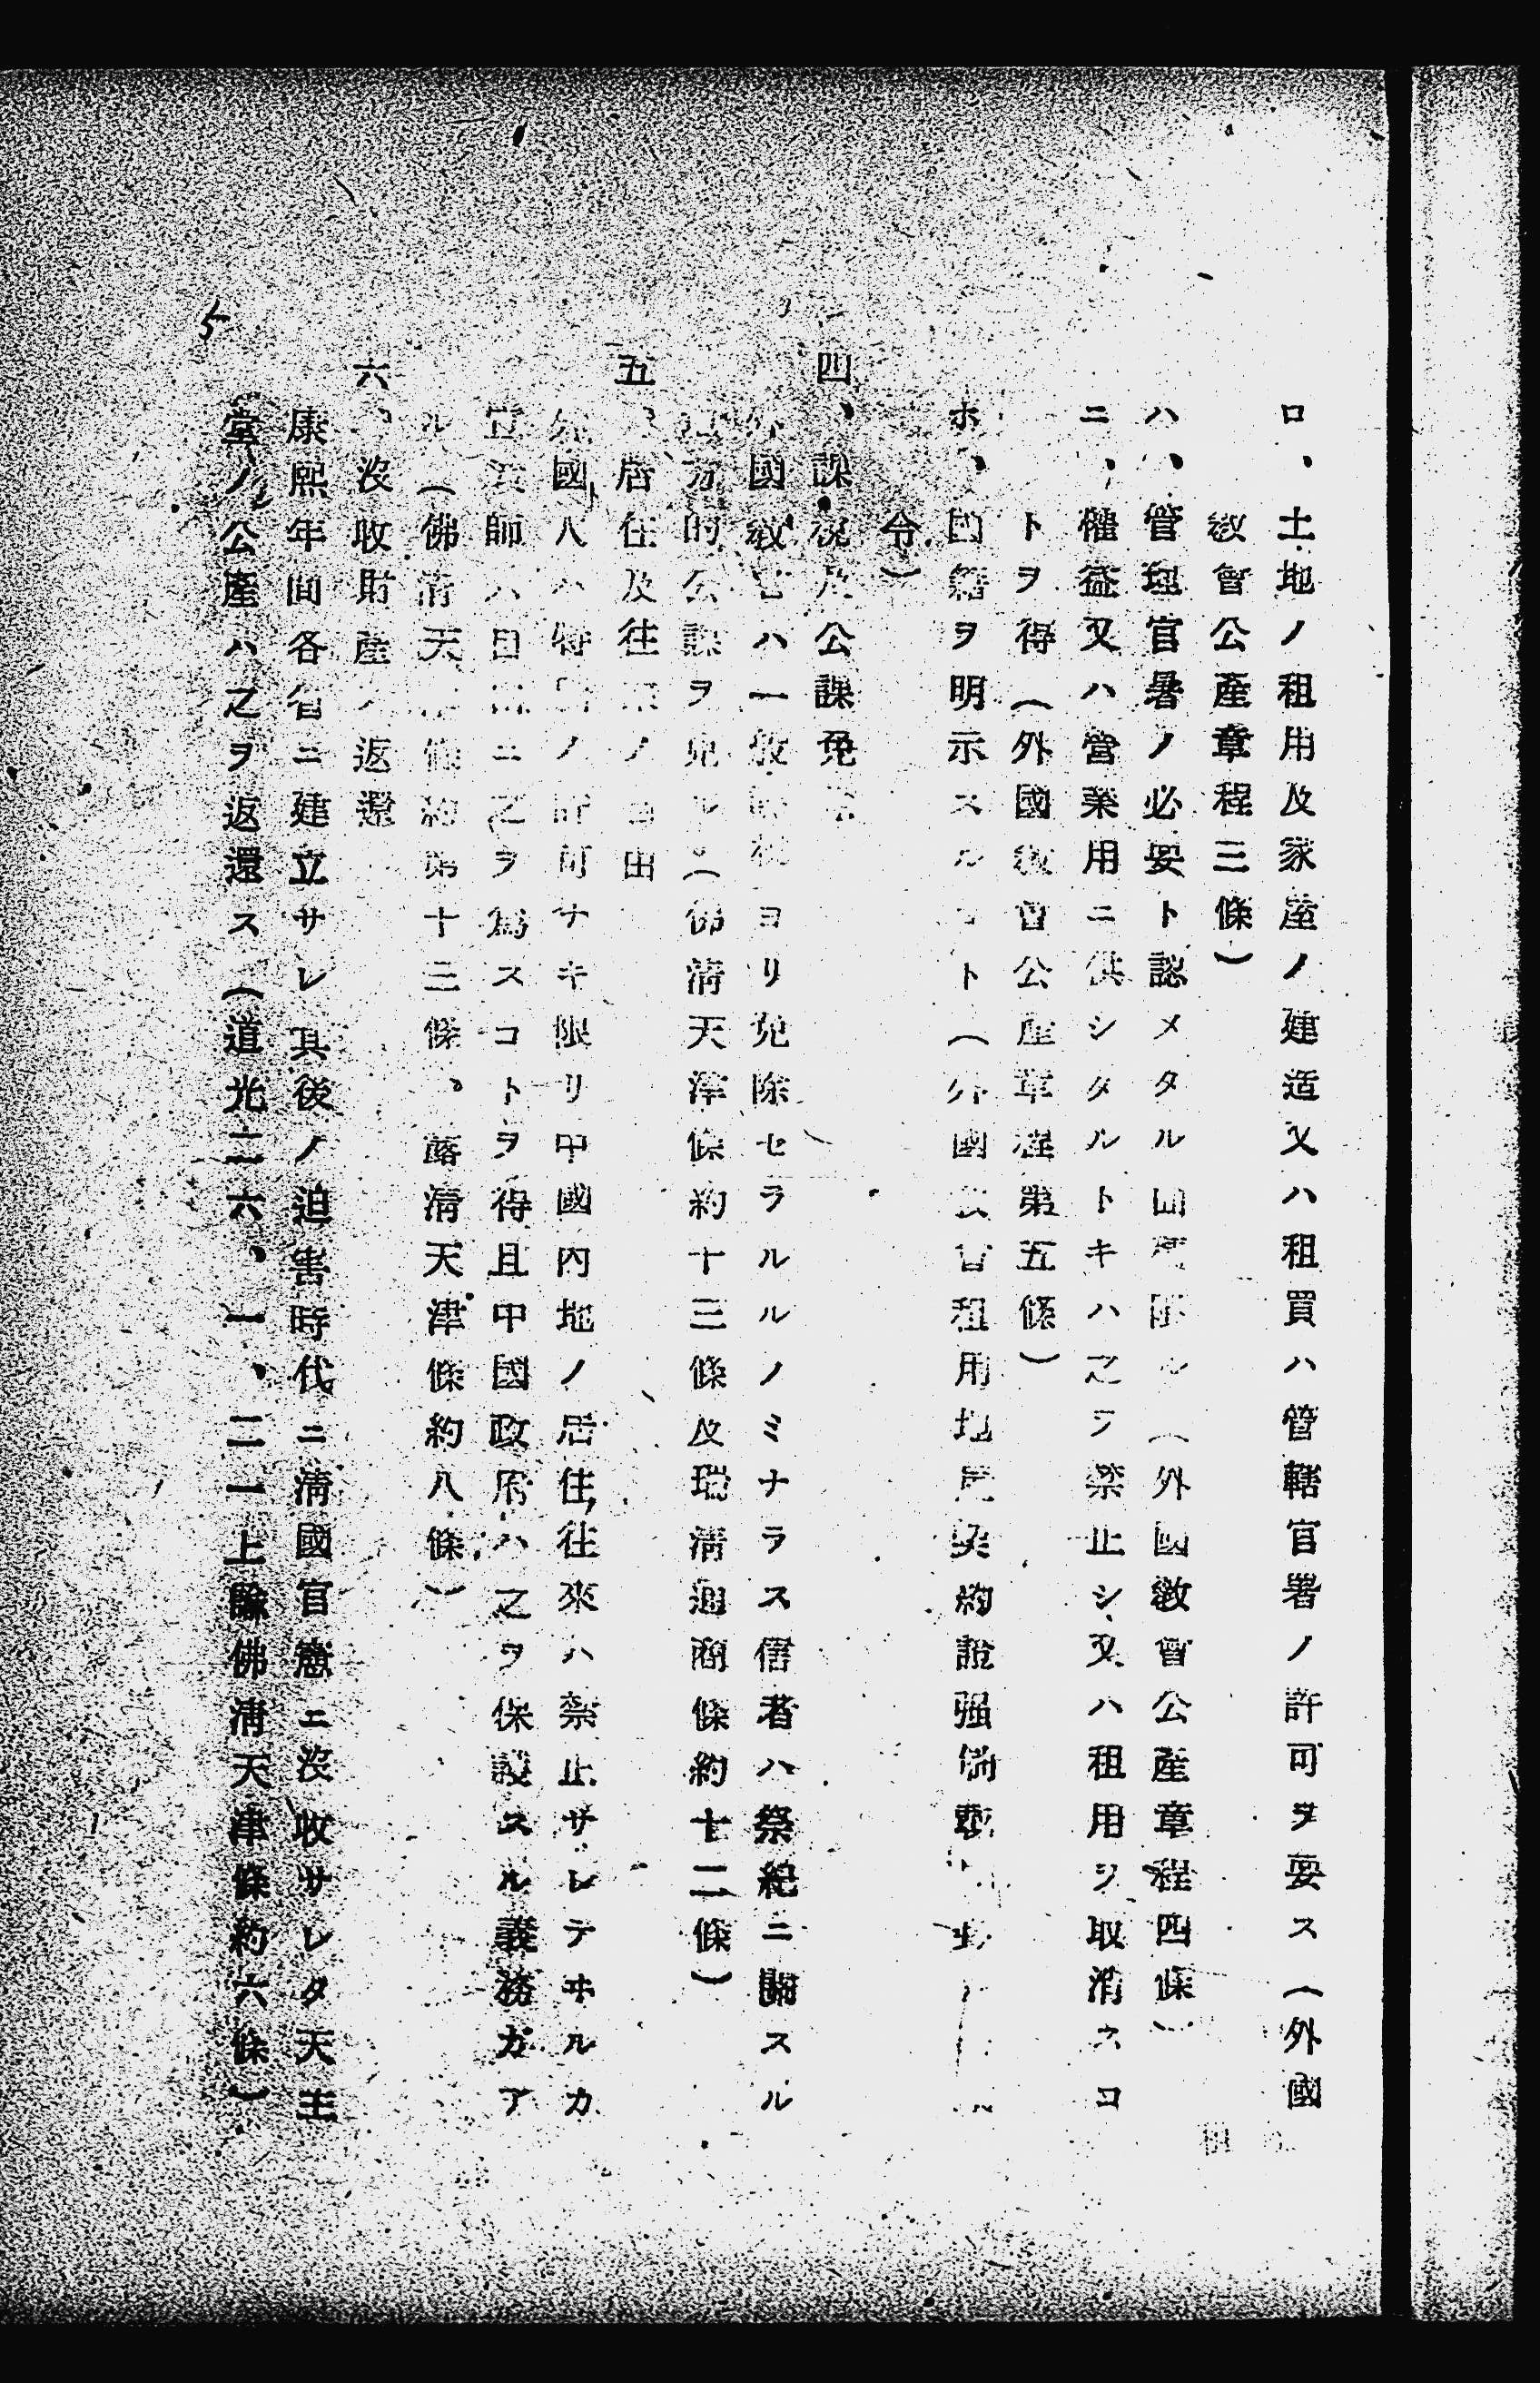 ロ、土地ノ租用及家屋ノ建造又ハ租買ハ管轄官署ノ許可ヲ要ス（外國
敎會公產章程三條）
ハ、管理官署ノ必要ト認メタル（外國敎會公產章程四條）
ニ、權益又ハ營業用ニ供シタルトキハ之ヲ禁止シ又ハ租用ヲ取消スコ
トヲ得（外國敎會公產章程第五條）
ホ、國籍ヲ明示スルコト（外國敎會租用地 契約證
令）
四、課稅及公課免除
外國敎會ハ一般課稅ヨリ免除セラルルノミナラス信者ハ祭紀ニ關スル
地方的公課ヲ免ル（佛淸天津條約十三條及瑞淸通商條約十二條）
五、居住及往來ノ自由
外國人ハ特別ノ許可ナキ限リ中國內地ノ居住往來ハ禁止サレテヰルカ
宣敎師ハ自由ニ之ヲ爲スコトヲ得且中國政府ハ之ヲ保護スル義務ガア
ル（佛淸天津條約第十三條、露淸天津條約八條）
六、沒收財產ノ返還
康熙年間各省ニ建立サレ其後ノ迫害時代ニ淸國官憲ニ沒收サレタ天主
堂ノ公產ハ之ヲ返還ス（道光二六、一、二一上諭佛淸天津條約六條）